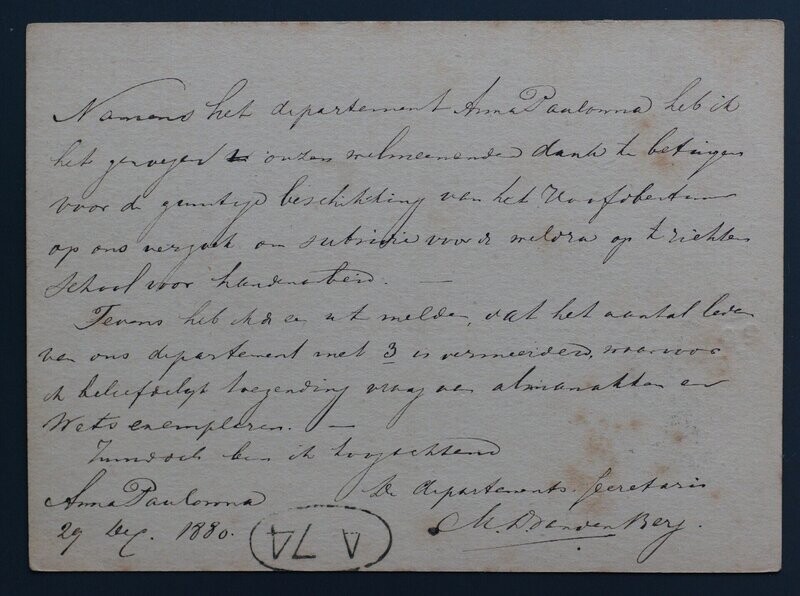 Namens het departement Anna Paulowna heb ik
het genoegen U onzen welmeenenden dank te betuigen
voor de gunstige beschikking van het Hoofdbestuur
op ons verzoek om subsidie voor de weldra op te richten
School voor handenarbeid. —
Tevens heb ik de eer U t melden, dat het aantal leden
van ons departement met 3 is vermeerderd, waarvoor
ik beleefdelijk toezending vraag van almanakken en
Wets exemplaren. —
Hoogachtend
Anna Paulowna De departements Secretaris
29 Dec. 1880. van den Berg.
A 74